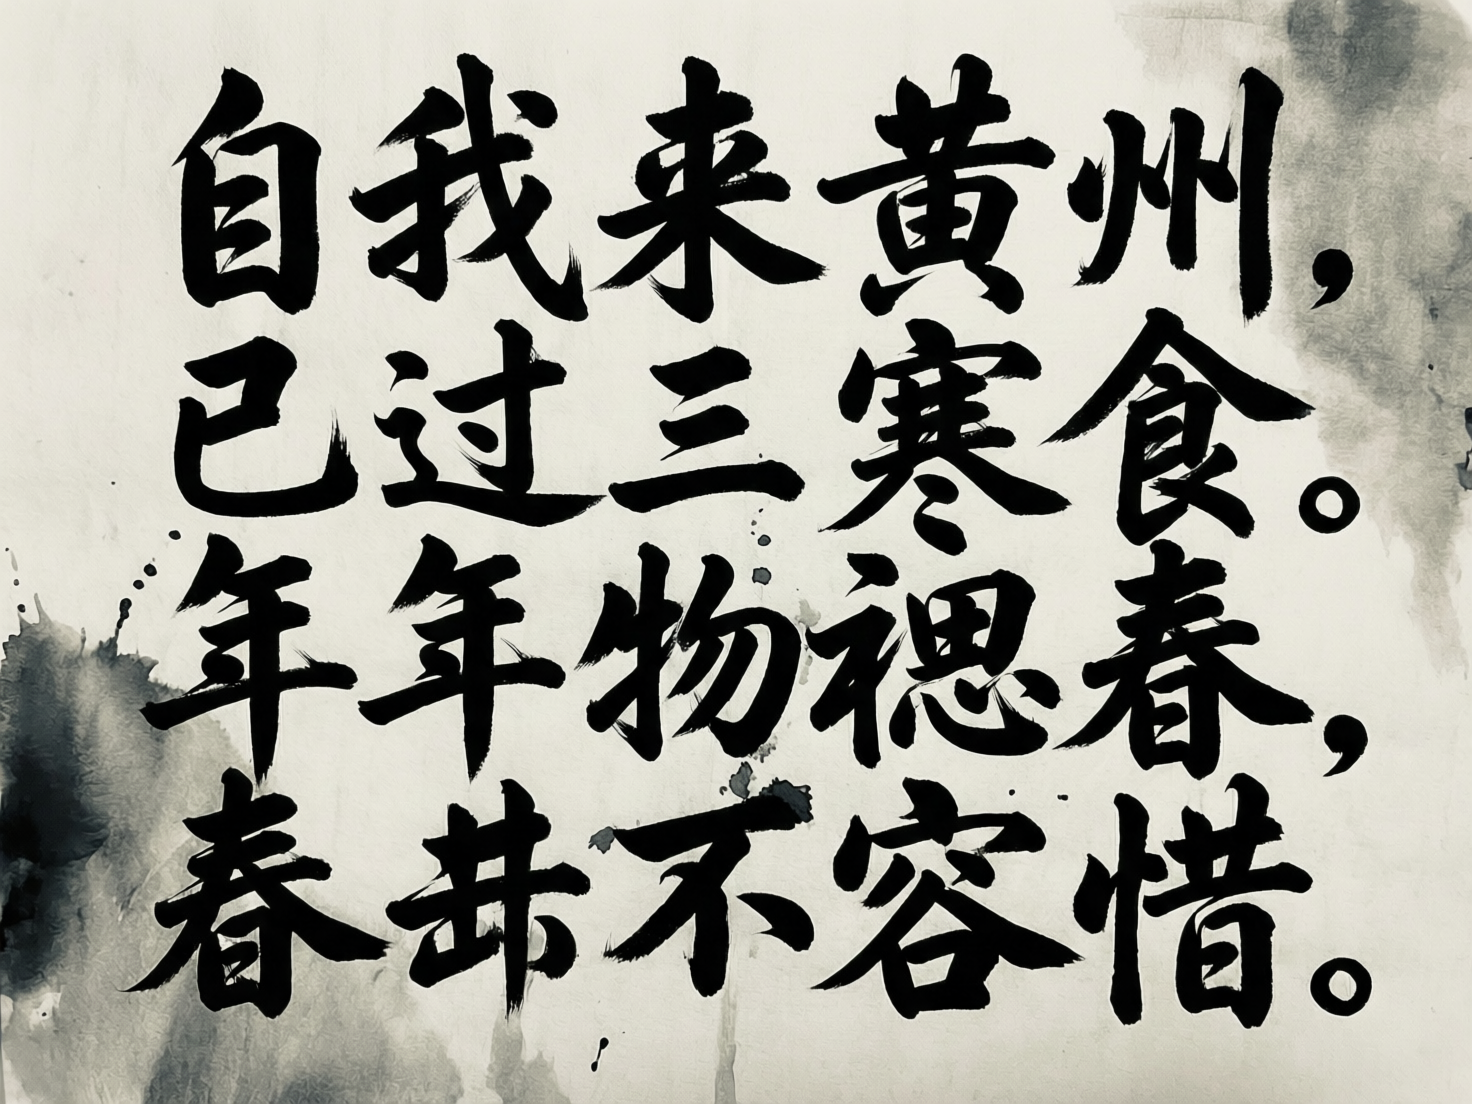 自我来黄州，
已过三寒食。
年年物禗春，
春不容惜。